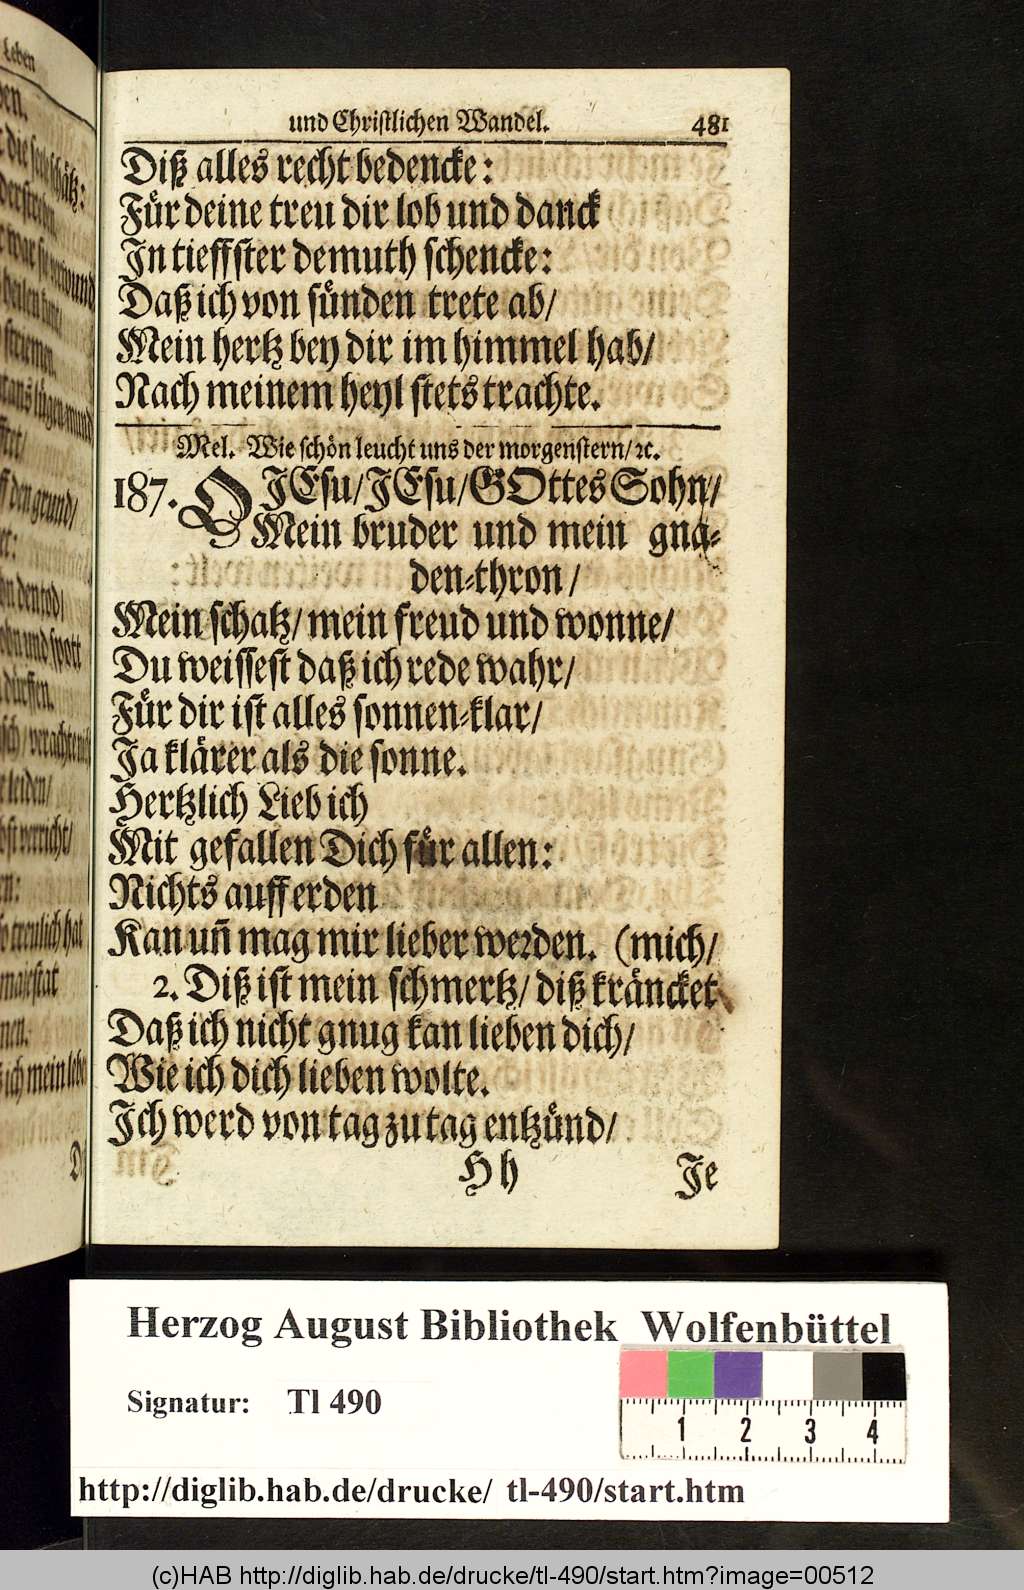 Leben
und Christlichen Wandel. 481
Diß alles recht bedencke:
Für deine treu dir lob und danck
In tieffster demuth schencke:
Daß ich von sünden trete ab/
Mein hertz bey dir im himmel hab/
Nach meinem heyl stets trachte.
Mel. Wie schön leucht uns der morgenstern/ ꝛc.
187. O JEsu/ JEsu/ GOttes Sohn/
Mein bruder und mein gna-
den-thron/
Mein schatz/ mein freud und wonne/
Du weissest daß ich rede wahr/
Für dir ist alles sonnen-klar/
Ja klärer als die sonne.
Hertzlich Lieb ich
Mit gefallen Dich für allen:
Nichts auff erden
Kan uñ mag mir lieber werden. (mich/
2. Diß ist mein schmertz/ diß kräncket
Daß ich nicht gnug kan lieben dich/
Wie ich dich lieben wolte.
Ich werd von tag zu tag entzünd/
Hh Je
Herzog August Bibliothek Wolfenbüttel
Signatur: Tl 490
1 2 3 4
http://diglib.hab.de/drucke/ tl-490/start.htm
(c)HAB http://diglib.hab.de/drucke/tl-490/start.htm?image=00512